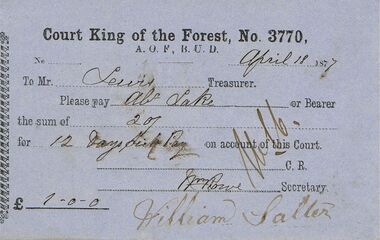 Court King of the Forest, No. 3770,
A. O. F., B. U. D.
No April 18 1877
To Mr. Lewis Treasurer.
Please pay Abm Lake or Bearer
the sum of 20/
for 12 Days Sick Pay on account of this Court.
C. R.
Wm Rowe Secretary.
£ 1-0-0 William Salter